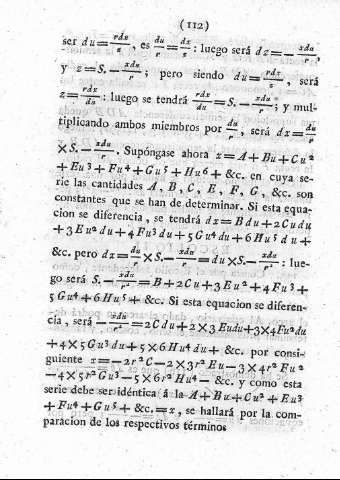 (112)
ser du = rdx/z, es du/r = dx/z : luego será dz = — xdu/r,
y z = S. — xdu/r ; pero siendo du = rdx/z, será
z = rdx/du : luego se tendrá rdx/du = S. — xdu/r ; y mul-
tiplicando ambos miembros por du/r, será dx = du/r
× S. — xdu/r. Supóngase ahora x = A + Bu + Cu²
+ Eu³ + Fu⁴ + Gu⁵ + Hu⁶ + &c. en cuya se-
rie las cantidades A, B, C, E, F, G, &c. son
constantes que se han de determinar. Si esta equa-
cion se diferencia, se tendrá dx = Bdu + 2Cudu
+ 3Eu²du + 4Fu³du + 5Gu⁴du + 6Hu⁵du +
&c. pero dx = du/r × S. — xdu/r = du × S. — xdu/r² : lue-
go será S. — xdu/r² = B + 2Cu + 3Eu² + 4Fu³ +
5Gu⁴ + 6Hu⁵ + &c. Si esta equacion se diferen-
cia, será — xdu/r² = 2Cdu + 2×3Eudu + 3×4Fu²du
+ 4×5Gu³du + 5×6Hu⁴du + &c. por consi-
guiente x = — 2r²C — 2×3r²Eu — 3×4r²Fu²
— 4×5r²Gu³ — 5×6r²Hu⁴ — &c. y como esta
serie debe ser idéntica á la A + Bu + Cu² + Eu³
+ Fu⁴ + Gu⁵ + &c. = x, se hallará por la com-
paracion de los respectivos términos